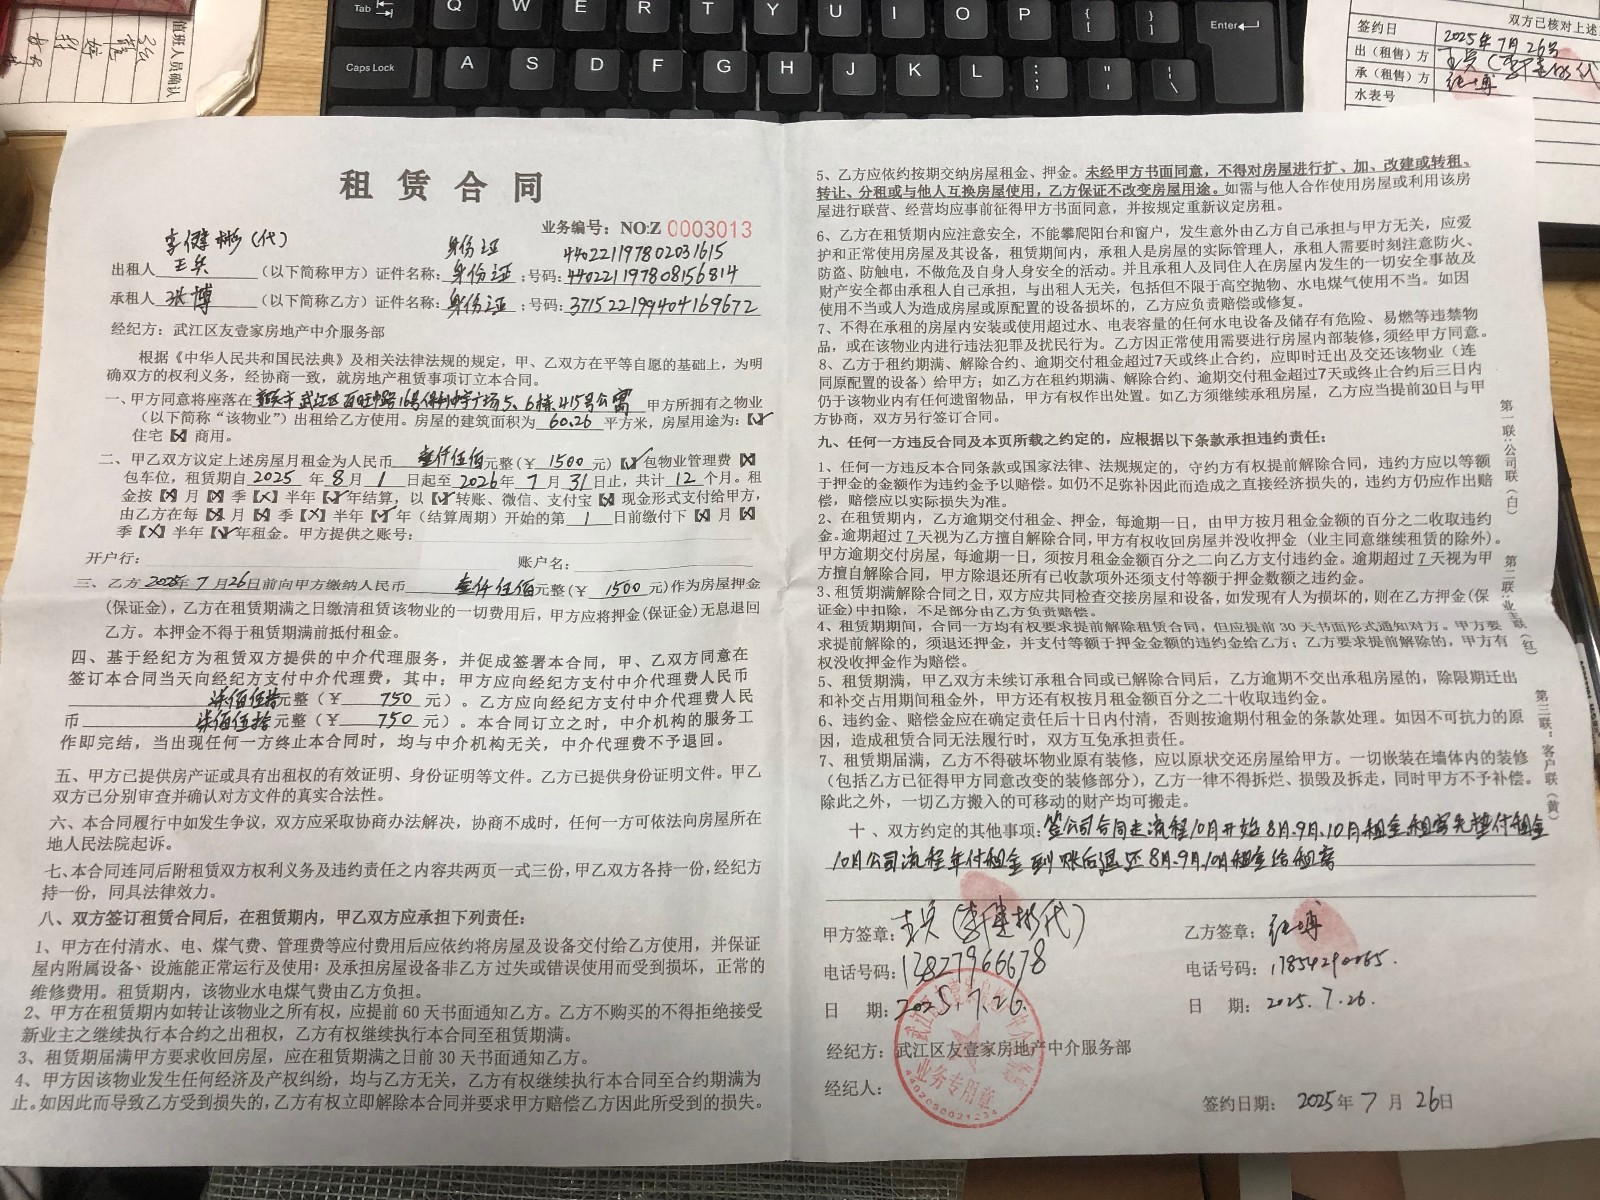 Tab
Q W E R T Y U I O P { [ } ] Enter
Caps Lock A S D F G H J K L : ; " ' | \
值班人员确认
双方已核对上述
签约日 2025年7月26号
出（租售）方
承（租售）方
水表号
租赁合同
业务编号：NO:Z 0003013
李健彬(代) 身份证 440221197802031615
出租人 王兵 （以下简称甲方）证件名称：身份证；号码：440221197808156814
承租人 张博 （以下简称乙方）证件名称：身份证；号码：371522199404169672
经纪方：武江区友壹家房地产中介服务部
根据《中华人民共和国民法典》及相关法律法规的规定，甲、乙双方在平等自愿的基础上，为明
确双方的权利义务，经协商一致，就房地产租赁事项订立本合同。
一、甲方同意将座落在 武江区百旺中路16号保利中宇广场5、6栋415号公寓 甲方所拥有之物业
（以下简称“该物业”）出租给乙方使用。房屋的建筑面积为 60.26 平方米，房屋用途为：【✓】
住宅【×】商用。
二、甲乙双方议定上述房屋月租金为人民币 壹仟伍佰元整（￥ 1500 元）【✓】包物业管理费【×】
包车位，租赁期自 2025 年 8 月 1 日起至 2026年 7 月 31日止，共计 12 个月。租
金按【×】月【×】季【×】半年【✓】年结算，以【✓】转账、微信、支付宝【×】现金形式支付给甲方，
由乙方在每【×】月【×】季【×】半年【✓】年（结算周期）开始的第 1 日前缴付下【×】月【×】
季【×】半年【✓】年租金。甲方提供之账号：
开户行： 账户名：
三、乙方 2025年 7 月26日前向甲方缴纳人民币 壹仟伍佰元整（￥ 1500 元）作为房屋押金
(保证金)，乙方在租赁期满之日缴清租赁该物业的一切费用后，甲方应将押金(保证金)无息退回
乙方。本押金不得于租赁期满前抵付租金。
四、基于经纪方为租赁双方提供的中介代理服务，并促成签署本合同，甲、乙双方同意在
签订本合同当天向经纪方支付中介代理费，其中：甲方应向经纪方支付中介代理费人民币
柒佰伍拾元整（￥ 750 元）。乙方应向经纪方支付中介代理费人民
币 柒佰伍拾元整（￥ 750 元）。本合同订立之时，中介机构的服务工
作即完结，当出现任何一方终止本合同时，均与中介机构无关，中介代理费不予退回。
五、甲方已提供房产证或具有出租权的有效证明、身份证明等文件。乙方已提供身份证明文件。甲乙
双方已分别审查并确认对方文件的真实合法性。
六、本合同履行中如发生争议，双方应采取协商办法解决，协商不成时，任何一方可依法向房屋所在
地人民法院起诉。
七、本合同连同后附租赁双方权利义务及违约责任之内容共两页一式三份，甲乙双方各持一份，经纪方
持一份，同具法律效力。
八、双方签订租赁合同后，在租赁期内，甲乙双方应承担下列责任：
1、甲方在付清水、电、煤气费、管理费等应付费用后应依约将房屋及设备交付给乙方使用，并保证
屋内附属设备、设施能正常运行及使用；及承担房屋设备非乙方过失或错误使用而受到损坏，正常的
维修费用。租赁期内，该物业水电煤气费由乙方负担。
2、甲方在租赁期内如转让该物业之所有权，应提前 60 天书面通知乙方。乙方不购买的不得拒绝接受
新业主之继续执行本合约之出租权，乙方有权继续执行本合同至租赁期满。
3、租赁期届满甲方要求收回房屋，应在租赁期满之日前 30 天书面通知乙方。
4、甲方因该物业发生任何经济及产权纠纷，均与乙方无关，乙方有权继续执行本合同至合约期满为
止。如因此而导致乙方受到损失的，乙方有权立即解除本合同并要求甲方赔偿乙方因此所受到的损失。
5、乙方应依约按期交纳房屋租金、押金。未经甲方书面同意，不得对房屋进行扩、加、改建或转租、
转让、分租或与他人互换房屋使用，乙方保证不改变房屋用途。如需与他人合作使用房屋或利用该房
屋进行联营、经营均应事前征得甲方书面同意，并按规定重新议定房租。
6、乙方在租赁期内应注意安全，不能攀爬阳台和窗户，发生意外由乙方自己承担与甲方无关，应爱
护和正常使用房屋及其设备，租赁期间内，承租人是房屋的实际管理人，承租人需要时刻注意防火、
防盗、防触电，不做危及自身人身安全的活动。并且承租人及同住人在房屋内发生的一切安全事故及
财产安全都由承租人自己承担，与出租人无关，包括但不限于高空抛物、水电煤气使用不当。如因
使用不当或人为造成房屋或原配置的设备损坏的，乙方应负责赔偿或修复。
7、不得在承租的房屋内安装或使用超过水、电表容量的任何水电设备及储存有危险、易燃等违禁物
品，或在该物业内进行违法犯罪及扰民行为。乙方因正常使用需要进行房屋内部装修，须经甲方同意。
8、乙方于租约期满、解除合约、逾期交付租金超过7天或终止合约，应即时迁出及交还该物业（连
同原配置的设备）给甲方；如乙方在租约期满、解除合约、逾期交付租金超过7天或终止合约后三日内
仍于该物业内有任何遗留物品，甲方有权作出处置。如乙方须继续承租房屋，乙方应当提前30日与甲
方协商，双方另行签订合同。
九、任何一方违反合同及本页所载之约定的，应根据以下条款承担违约责任：
1、任何一方违反本合同条款或国家法律、法规规定的，守约方有权提前解除合同，违约方应以等额
于押金的金额作为违约金予以赔偿。如仍不足弥补因此而造成之直接经济损失的，违约方仍应作出赔
偿，赔偿应以实际损失为准。
2、在租赁期内，乙方逾期交付租金、押金，每逾期一日，由甲方按月租金金额的百分之二收取违约
金。逾期超过 7 天视为乙方擅自解除合同，甲方有权收回房屋并没收押金（业主同意继续租赁的除外）。
甲方逾期交付房屋，每逾期一日，须按月租金金额百分之二向乙方支付违约金。逾期超过 7 天视为甲
方擅自解除合同，甲方除退还所有已收款项外还须支付等额于押金数额之违约金。
3、租赁期满解除合同之日，双方应共同检查交接房屋和设备，如发现有人为损坏的，则在乙方押金(保
证金)中扣除，不足部分由乙方负责赔偿。
4、租赁期期间，合同一方均有权要求提前解除租赁合同，但应提前 30 天书面形式通知对方。甲方要
求提前解除的，须退还押金，并支付等额于押金金额的违约金给乙方；乙方要求提前解除的，甲方有
权没收押金作为赔偿。
5、租赁期满，甲乙双方未续订承租合同或已解除合同后，乙方逾期不交出承租房屋的，除限期迁出
和补交占用期间租金外，甲方还有权按月租金额百分之二十收取违约金。
6、违约金、赔偿金应在确定责任后十日内付清，否则按逾期付租金的条款处理。如因不可抗力的原
因，造成租赁合同无法履行时，双方互免承担责任。
7、租赁期届满，乙方不得破坏物业原有装修，应以原状交还房屋给甲方。一切嵌装在墙体内的装修
（包括乙方已征得甲方同意改变的装修部分），乙方一律不得拆烂、损毁及拆走，同时甲方不予补偿。
除此之外，一切乙方搬入的可移动的财产均可搬走。
十、双方约定的其他事项：签公司合同走流程10月开始8月.9月.10月租金租客先垫付租金
10月公司流程年付租金到账后退还8月.9月.10月租金给租客
甲方签章：王兵(李健彬代) 乙方签章：张博
电话号码：13827966678 电话号码：
日 期：2025.7.26. 日 期：2025.7.26.
经纪方：武江区友壹家房地产中介服务部
经纪人：
业务专用章
签约日期： 2025年 7 月 26日
第一联：公司联（白）
第二联：业主联（红）
第三联：客户联（黄）